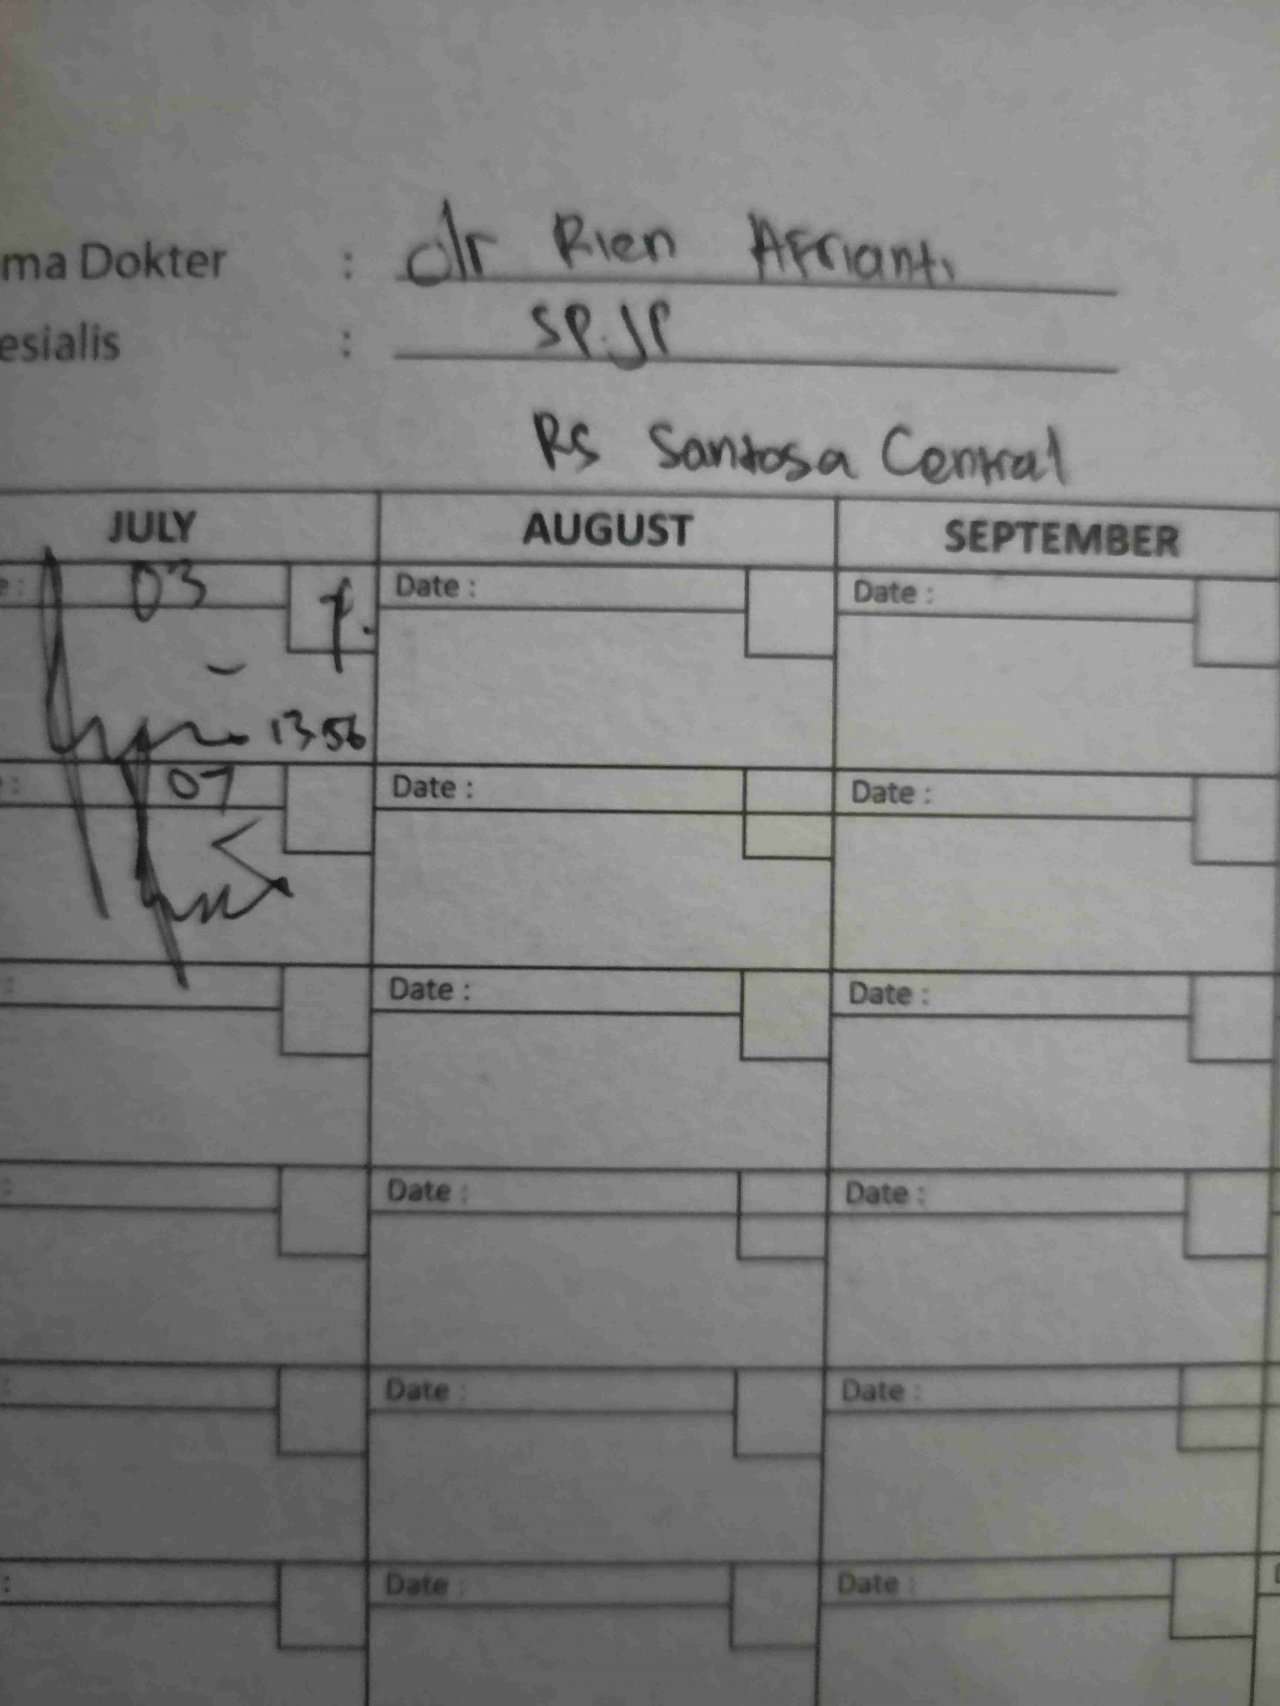 ma Dokter : dr Rien Afrianti
esialis : SP.JP
RS Santosa Central
JULY AUGUST SEPTEMBER
: 03 Date : Date :
13.56
: 07 Date : Date :
: Date : Date :
: Date : Date :
: Date : Date :
: Date : Date :